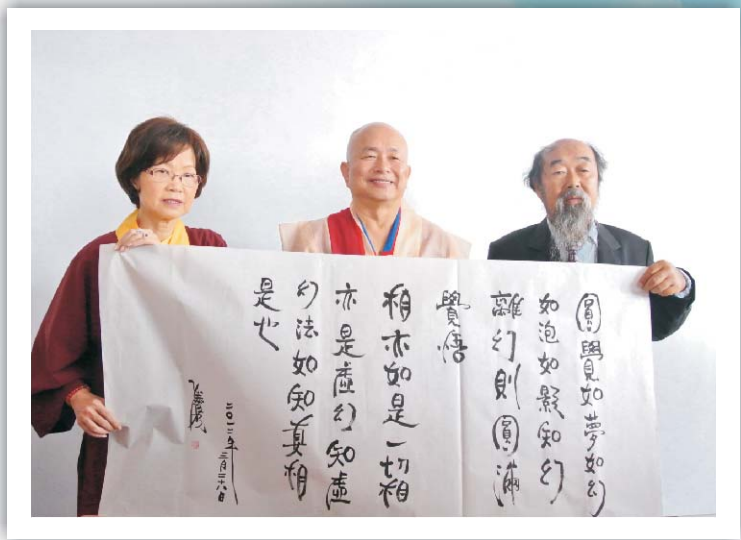 圓覺如夢如幻
如泡如影知幻
離幻則圓滿
覺悟
相亦如是一切相
亦是虛幻知虛
幻法如知真相
是也
二〇一二年三月二六日